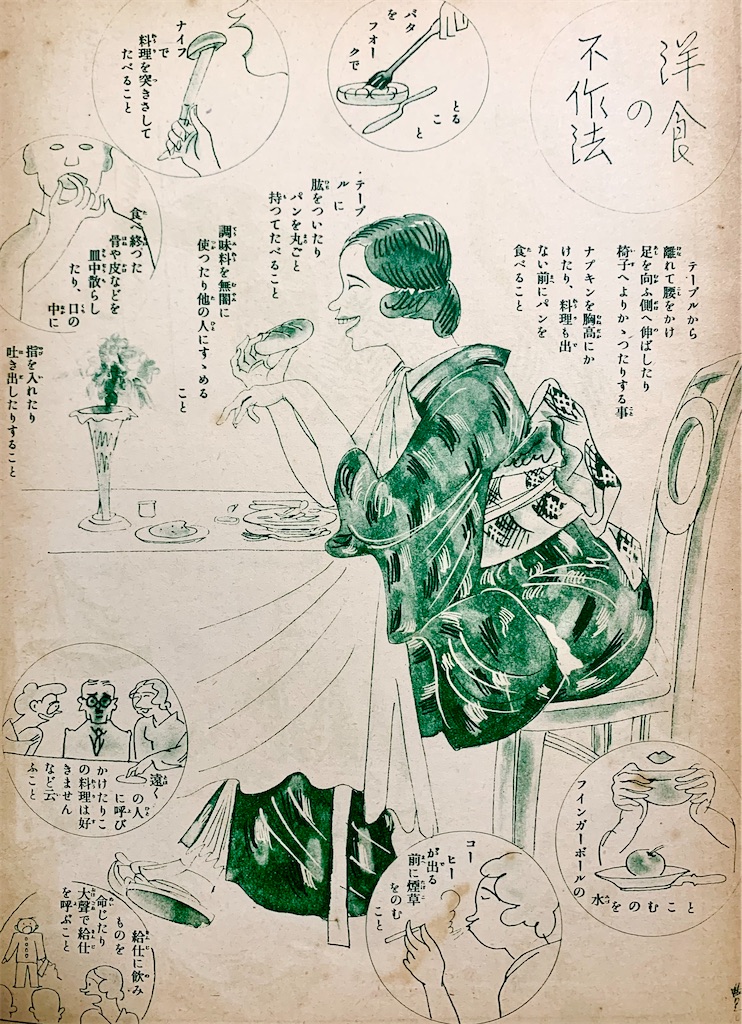 洋食
の
不作法
バタ
を
フォー
クで
とる
こと
ナイフ
で
料理を突きさして
たべること
テーブルから
離れて腰をかけ
足を向ふ側へ伸ばしたり
椅子へよりかゝつたりする事
ナプキンを胸高にか
けたり、料理も出
ない前にパンを
食べること
・テーブ
ルに
肱をついたり
パンを丸ごと
持つてたべること
調味料を無闇に
使つたり他の人にすゝめる
こと
食べ終つた
骨や皮などを
皿中散らし
たり、口の
中に
指を入れたり
吐き出したりすること
遠く
の人
に呼び
かけたりこ
の料理は好
きません
など云
ふこと
給仕に飲み
ものを
命じたり
大聲で給仕
を呼ぶこと
コー
ヒー
が出る
前に煙草
をのむ
こと
フインガーボールの
水をのむこと